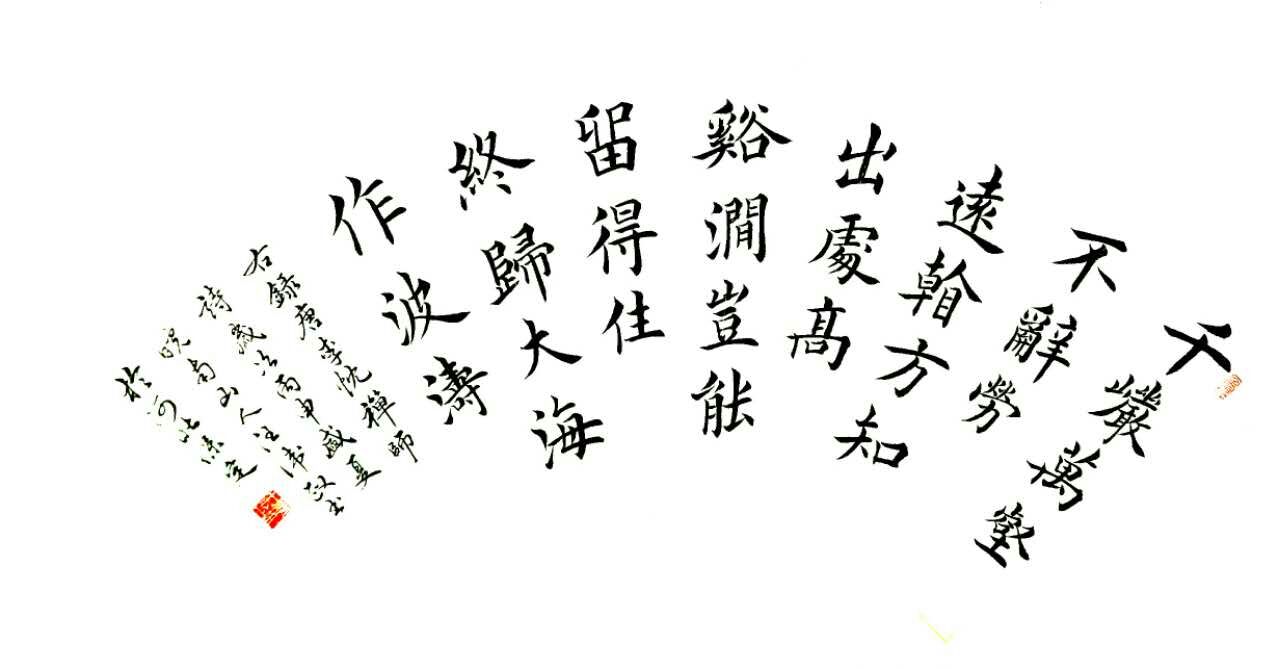 千巖萬壑
不辭勞
遠𩕄方知
出處高
谿澗豈能
留得住
終歸大海
作波濤
右錄唐李忱禪師
詩歲次丙申盛夏
皖南山人汪沛敬書
於